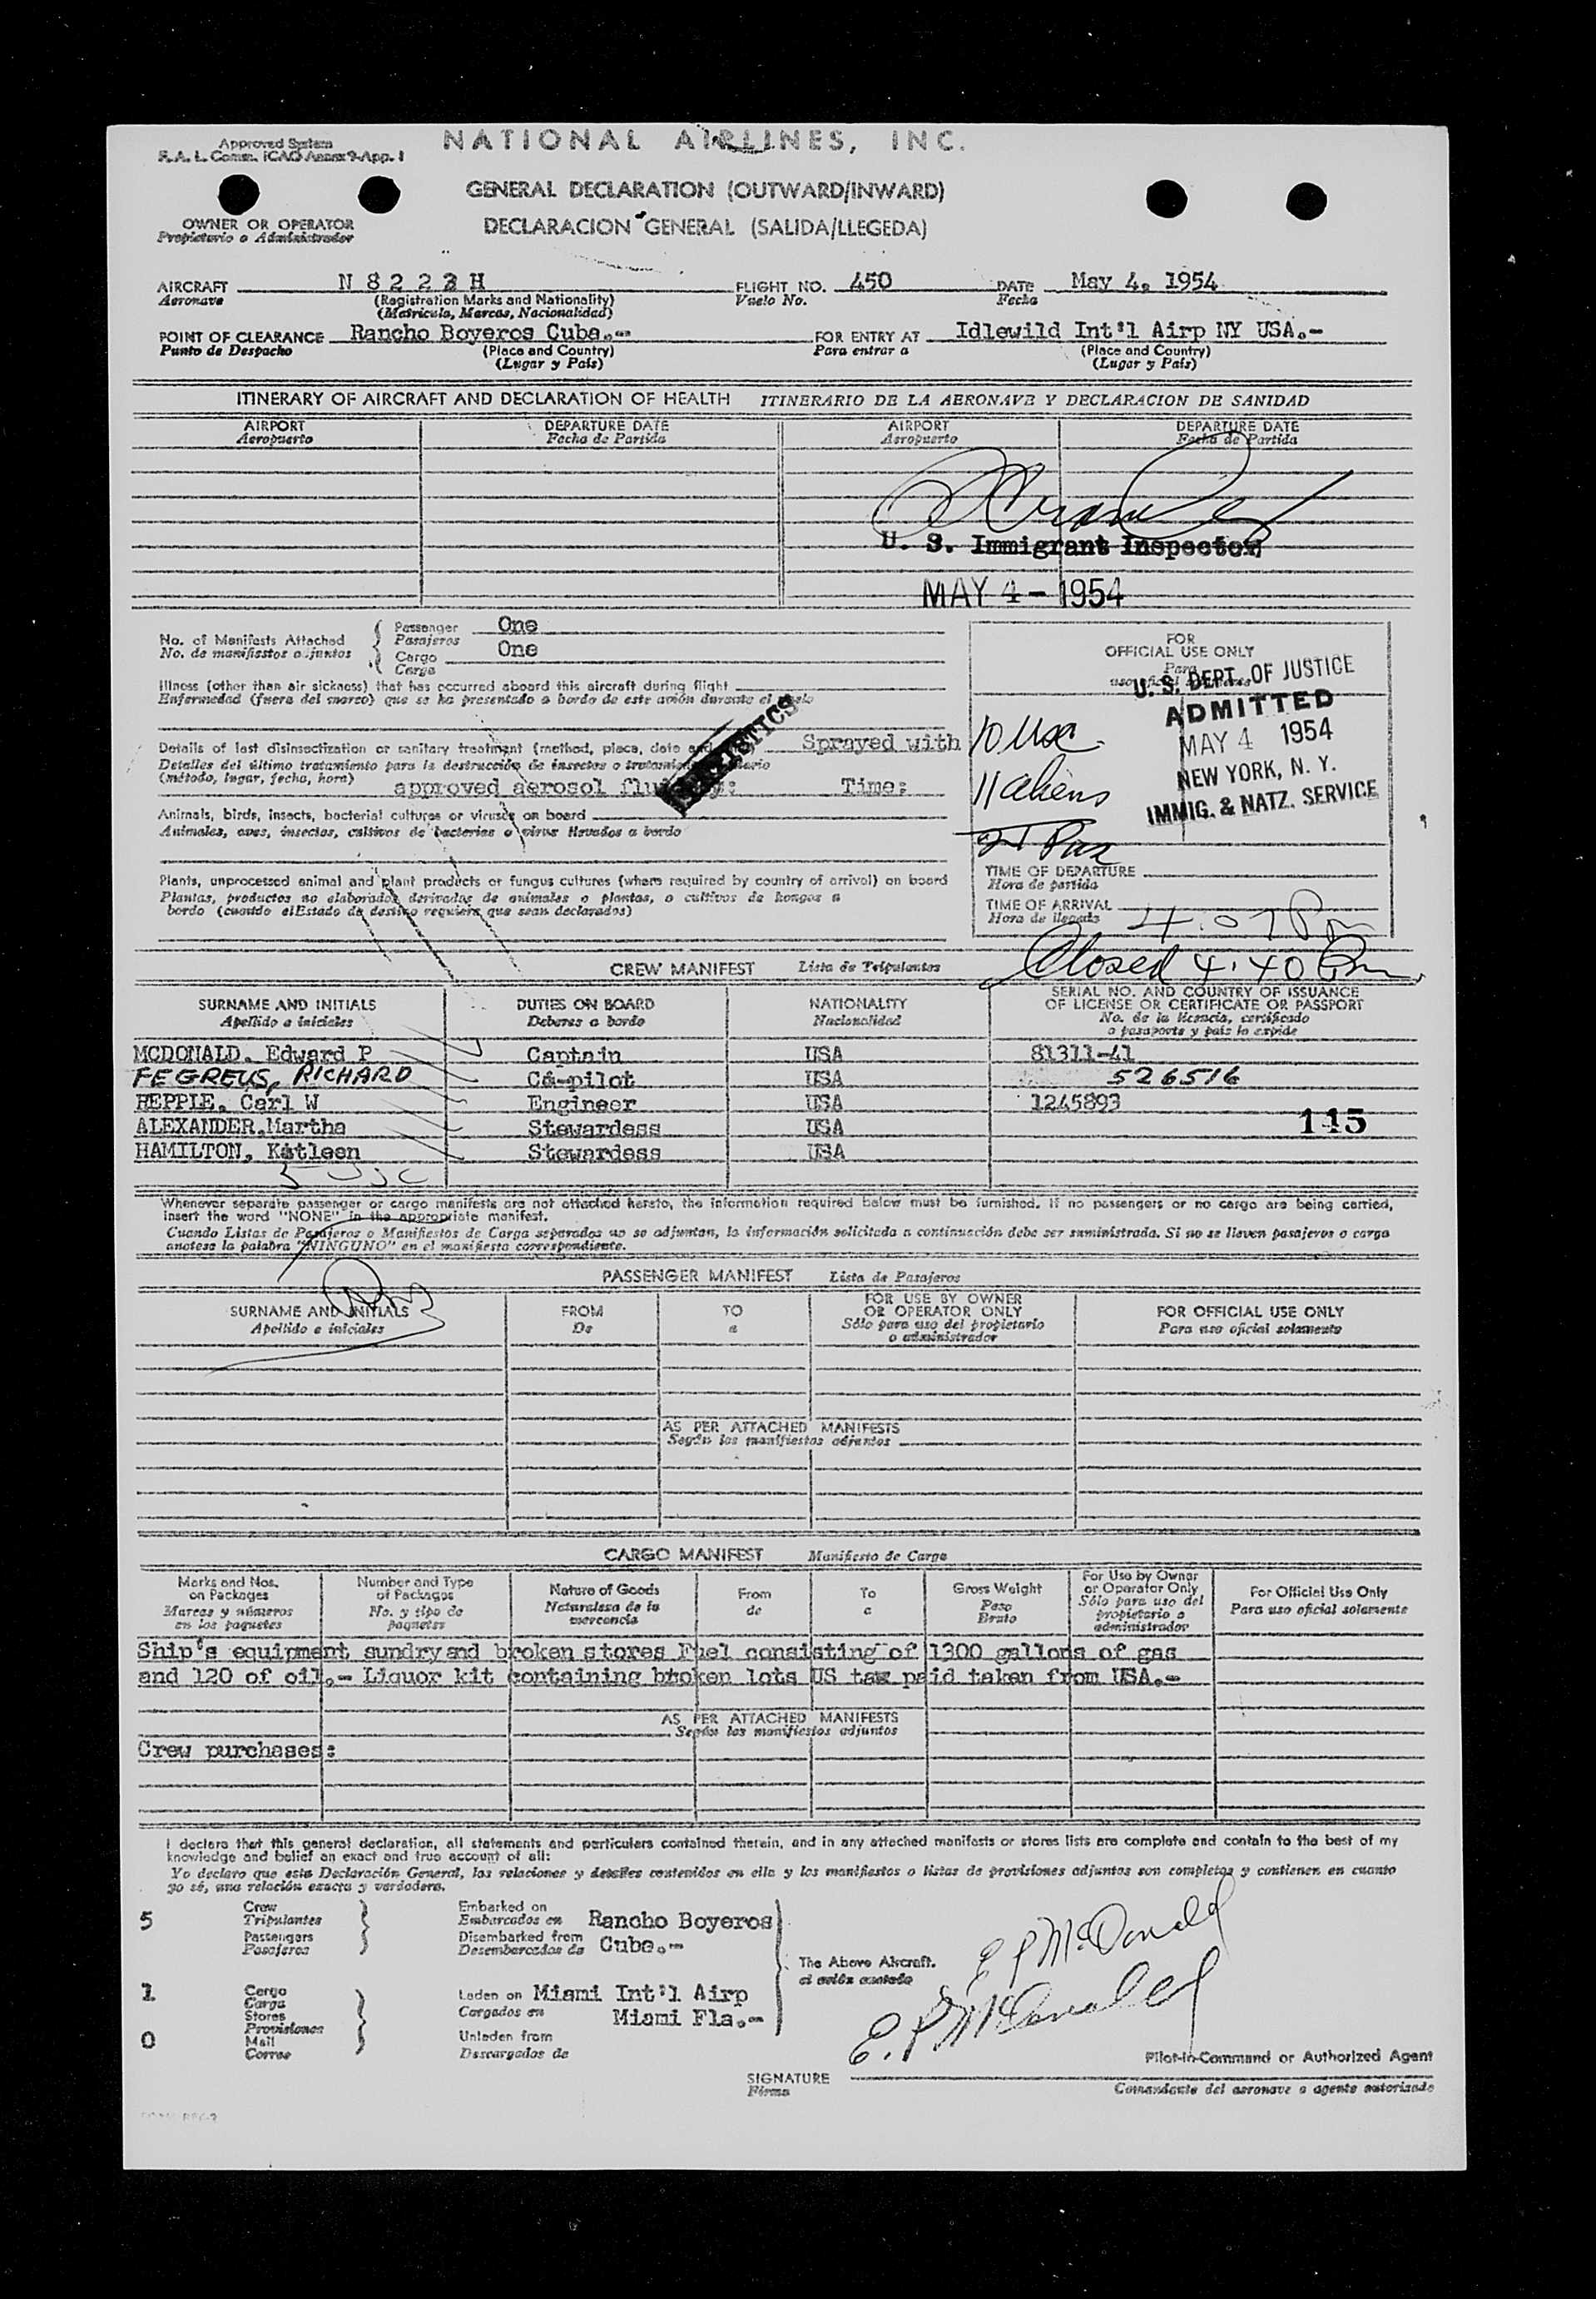 Approved System
F. A. L. Comm. ICAO Annex 9-App. 1
NATIONAL AIRLINES, INC.
GENERAL DECLARATION (OUTWARD/INWARD)
DECLARACION GENERAL (SALIDA/LLEGEDA)
OWNER OR OPERATOR
Propietario o Administrador
AIRCRAFT N 8 2 2 H FLIGHT NO. 450 DATE May 4, 1954
Aeronave (Registration Marks and Nationality) Vuelo No. Fecha
(Matricula, Marcas, Nacionalidad)
POINT OF CLEARANCE Rancho Boyeros Cuba.- FOR ENTRY AT Idlewild Int'l Airp NY USA.-
Punto de Despacho (Place and Country) Para entrar a (Place and Country)
(Lugar y País) (Lugar y País)
ITINERARY OF AIRCRAFT AND DECLARATION OF HEALTH ITINERARIO DE LA AERONAVE Y DECLARACION DE SANIDAD
AIRPORT DEPARTURE DATE AIRPORT DEPARTURE DATE
Aeropuerto Fecha de Partida Aeropuerto Fecha de Partida
U. S. Immigrant Inspector
MAY 4 - 1954
No. of Manifests Attached Passenger One
No. de manifiestos adjuntos Pasajeros
Cargo One
Carga
FOR
OFFICIAL USE ONLY
Para
uso oficial
U. S. DEPT. OF JUSTICE
ADMITTED
MAY 4 1954
NEW YORK, N. Y.
IMMIG. & NATZ. SERVICE
10 USC
11 aliens
21 Pax
Illness (other than air sickness) that has occurred aboard this aircraft during flight
Enfermedad (fuera del mareo) que se ha presentado a bordo de este avión durante el vuelo
STATISTICS
Details of last disinsectization or sanitary treatment (method, place, date and Sprayed with
Detalles del último tratamiento para la destrucción de insectos o tratamiento
(método, lugar, fecha, hora) approved aerosol fluid Time:
Animals, birds, insects, bacterial cultures or viruses on board
Animales, aves, insectos, cultivos de bacterias o virus llevados a bordo
Plants, unprocessed animal and plant products or fungus cultures (where required by country of arrival) on board
Plantas, productos no elaborados derivados de animales o plantas, o cultivos de hongos a
bordo (cuando el Estado de destino requiera que sean declarados)
TIME OF DEPARTURE
Hora de partida
TIME OF ARRIVAL 4:07 Pm
Hora de llegada
Closed 4:40 Pm
CREW MANIFEST Lista de Tripulantes
SURNAME AND INITIALS DUTIES ON BOARD NATIONALITY SERIAL NO. AND COUNTRY OF ISSUANCE
OF LICENSE OR CERTIFICATE OR PASSPORT
Apellido e iniciales Deberes a bordo Nacionalidad No. de la licencia, certificado
o pasaporte y país lo expide
MCDONALD, Edward P Captain USA 81311-41
FEGREUS, RICHARD Co-pilot USA 526516
HEPPIE, Carl W Engineer USA 1245893
ALEXANDER, Martha Stewardess USA 115
HAMILTON, Katleen Stewardess USA
5 USC
Whenever separate passenger or cargo manifests are not attached hereto, the information required below must be furnished. If no passengers or no cargo are being carried,
insert the word "NONE" in the appropriate manifest.
Cuando Listas de Pasajeros o Manifiestos de Carga separados no se adjuntan, la información solicitada a continuación debe ser suministrada. Si no se lleven pasajeros o carga
anotese la palabra "NINGUNO" en el manifiesto correspondiente.
PASSENGER MANIFEST Lista de Pasajeros
SURNAME AND INITIALS FROM TO FOR USE BY OWNER FOR OFFICIAL USE ONLY
OR OPERATOR ONLY
Apellido e iniciales De a Sólo para uso del propietario Para uso oficial solamente
o administrador
AS PER ATTACHED MANIFESTS
Según los manifiestos adjuntos
CARGO MANIFEST Manifiesto de Carga
Marks and Nos. Number and Type Nature of Goods From To Gross Weight For Use by Owner For Official Use Only
on Packages of Packages or Operator Only
Marcas y números No. y tipo de Naturaleza de la de a Peso Sólo para uso del Para uso oficial solamente
en los paquetes paquetes mercancía Bruto propietario o
administrador
Ship's equipment sundry and broken stores Fuel consisting of 1300 gallons of gas
and 120 of oil.- Liquor kit containing broken lots US tax paid taken from USA.-
AS PER ATTACHED MANIFESTS
Según los manifiestos adjuntos
Crew purchases:
I declare that this general declaration, all statements and particulars contained therein, and in any attached manifests or stores lists are complete and contain to the best of my
knowledge and belief an exact and true account of all:
Yo declaro que esta Declaración General, las relaciones y detalles contenidos en ella y los manifiestos o listas de provisiones adjuntos son completas y contienen en cuanto
yo sé, una relación exacta y verdadera.
5 Crew Embarked on Rancho Boyeros
Tripulantes Embarcados en
Passengers Disembarked from Cuba.-
Pasajeros Desembarcados de
The Above Aircraft.
el avión anotado
E P McDonald
1 Cargo Laden on Miami Int'l Airp
Carga Cargados en Miami Fla.-
Stores
Provisiones
0 Mail Unladen from
Correo Descargados de
E. P. McDonald
Pilot-in-Command or Authorized Agent
SIGNATURE
Firma Comandante del aeronave o agente autorizado